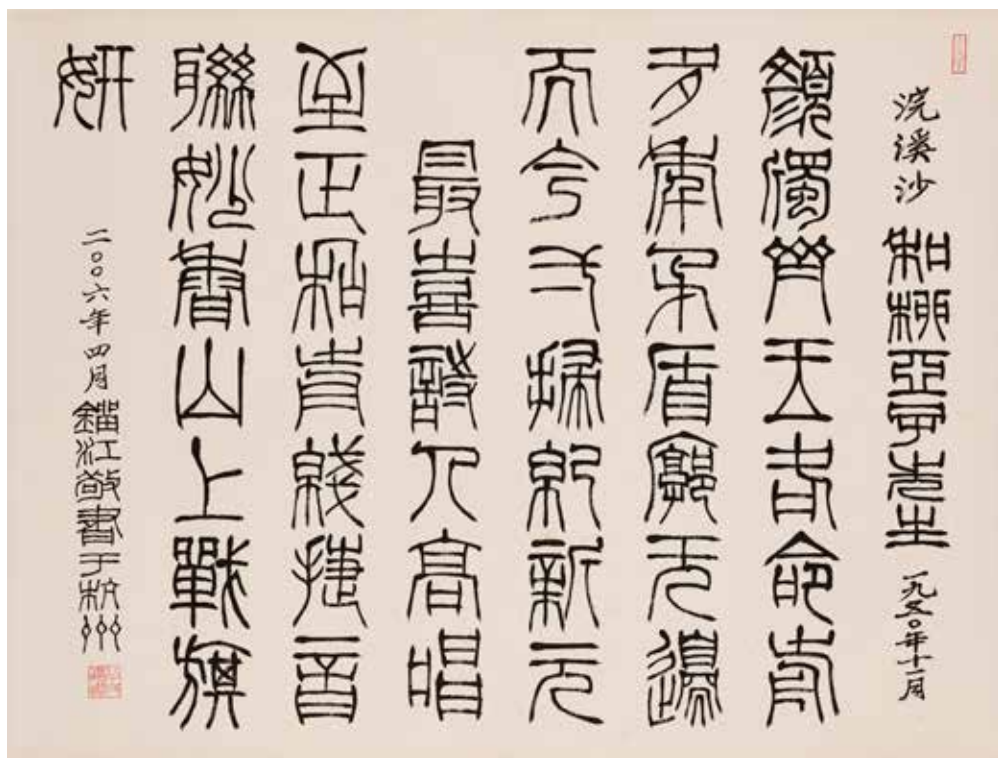 浣溪沙 和柳亞子先生 一九五〇年十一月
顏斶齊王各命前
多年矛盾廓无邊
而今弌掃紀新元
最喜詩人高唱
至正和前綫捷音
聯妙香山上戰旗
妍
二〇〇六年四月鎦江敬書于杭州